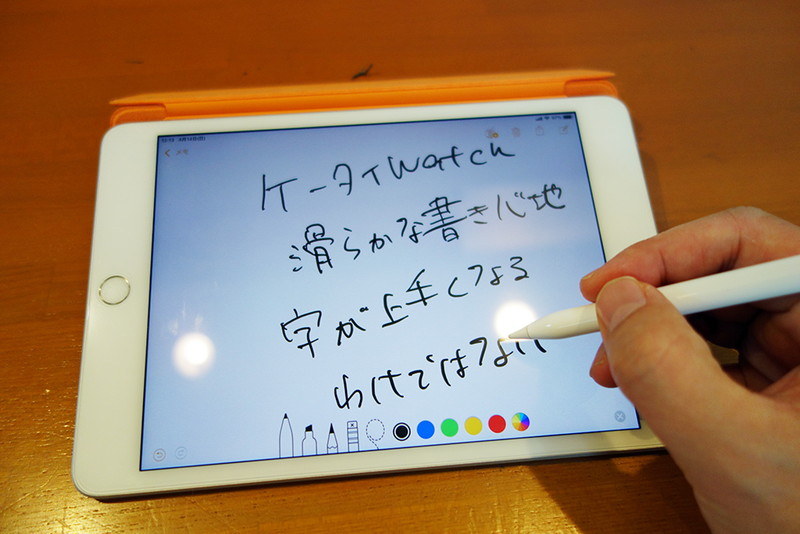 メモ
ケータイWatch
滑らかな書き心地
字が上手くなる
わけではない